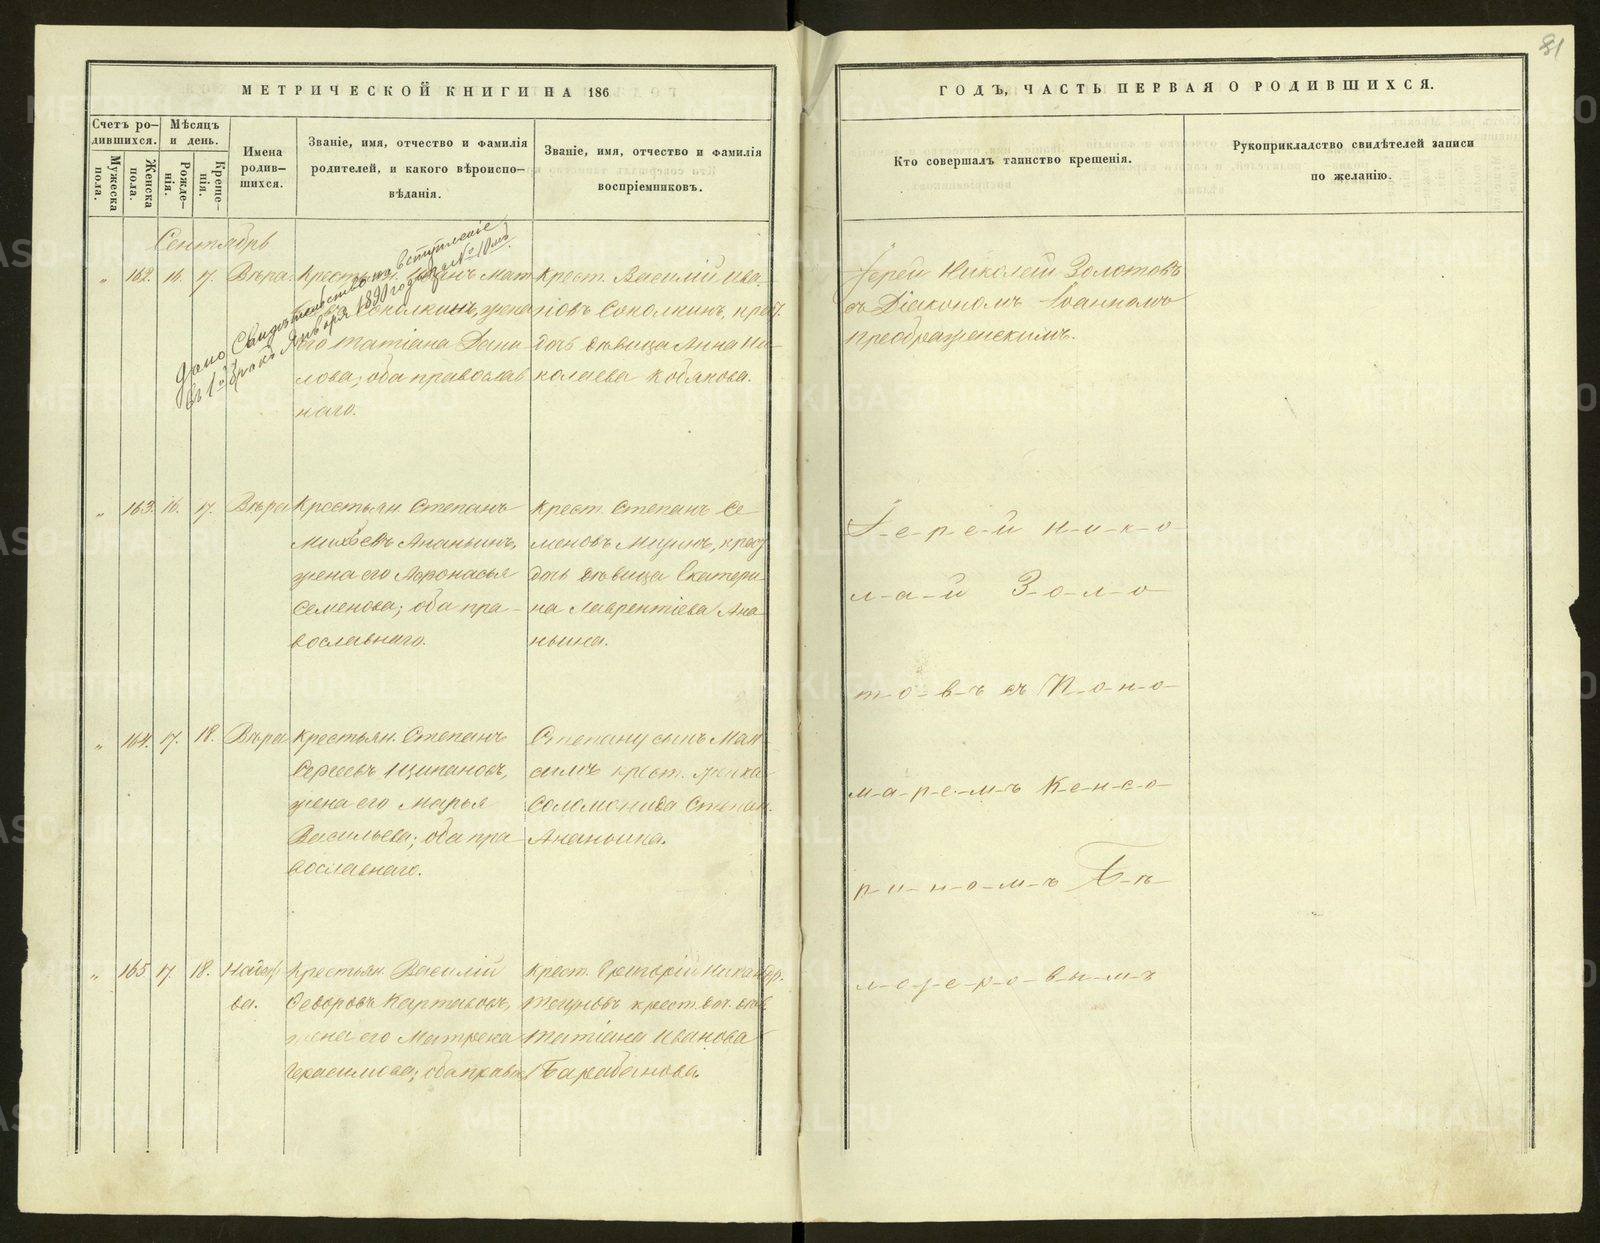 81
МЕТРИЧЕСКОЙ КНИГИ НА 186
ГОДЪ, ЧАСТЬ ПЕРВАЯ О РОДИВШИХСЯ.
Счетъ ро-
дившихся.
Мужеска
пола.
Женска
пола.
Мѣсяцъ
и день.
Рожде-
нія.
Креще-
нія.
Имена
родив-
шихся.
Званіе, имя, отчество и фамилія
родителей, и какого вѣроиспо-
вѣданія.
Званіе, имя, отчество и фамилія
воспріемниковъ.
Кто совершалъ таинство крещенія.
Рукоприкладство свидѣтелей записи
по желанію.
Сентябрь
Дано Свидѣтельство на вступленіе
въ 1й бракъ Января 1890 года
" 162. 16. 17. Вѣра.
Соколкинъ, жена
его Татіана Дани-
лова; оба православ
наго.
Крест. Василій Ива-
новъ Соколкинъ, крест.
дочь дѣвица Анна Ни-
колаева Кобякова.
Іерей Николай Золотовъ
съ Діакономъ Іоанномъ
Преображенскимъ.
" 163. 16. 17. Вѣра
Крестьян. Степанъ
Ананьинъ,
жена его Афонасья
Семенова; оба пра-
вославнаго.
Крест. Степанъ Се
меновъ крест
дочь дѣвица Екатери-
на Лаврентіева Ана-
ньина.
І-е-р-е-й Н-и-к-о-
л-а-й З-о-л-о-
т-о-в-ъ съ П-о-н-о-
м-а-р-е-м-ъ К-е-н-с-о-
р-и-н-о-м-ъ Б-ѣ-
" 164. 17. 18. Вѣра
Крестьян. Степанъ
Сергеевъ Щипановъ,
жена его Марья
Васильева; оба пра-
вославнаго.
Степану сынъ Мак-
симъ крест. женка
Соломонида Степан.
Ананьина.
" 165 17. 18. Надеж-
ва.
Крестьян. Василій
Ѳедоровъ Карташовъ,
жена его Матрена
Герасимова; оба правос
Крест. Григорій Никандр.
крест. доч. дѣв.
Татіана Иванова
Барабанова.